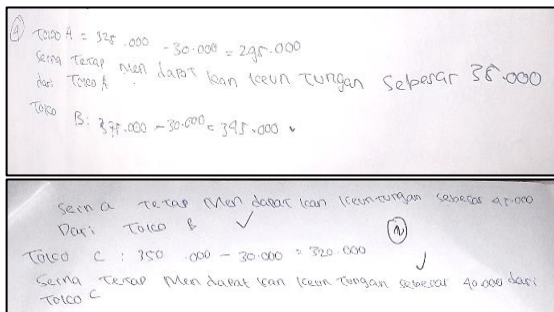 Toko A = 325.000 - 30.000 = 295.000
Serna Tetap Men dapat kan keun tungan sebesar 35.000
dari Toko A.
Toko B: 375.000 - 30.000 = 345.000
Serna Tetap Men dapat kan keuntungan sebesar 45.000
Dari Toko B
Toko C : 350 .000 - 30.000 = 320.000
Serna Tetap Men dapat kan keun tungan sebesar 40.000 dari
Toko C